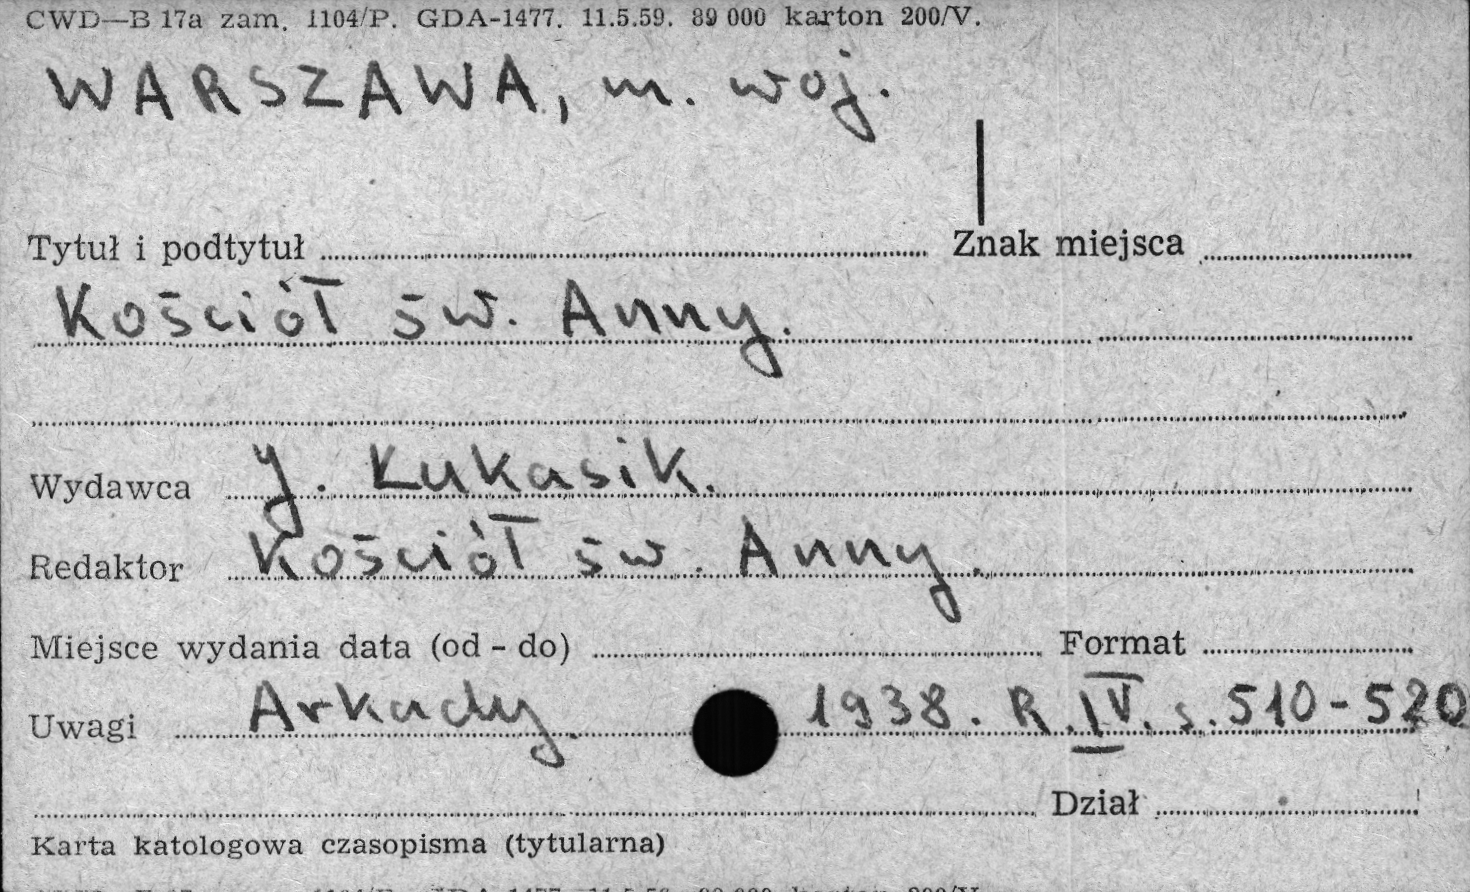 CWD—B 17a zam. 1104/P. GDA-1477. 11.5.59. 89 000 karton 200/V.
WARSZAWA, m. woj.
Tytuł i podtytuł Znak miejsca
Kościół św. Anny.
Wydawca J. Łukasik.
Redaktor Kościół św. Anny.
Miejsce wydania data (od - do) Format
Uwagi Arkady. 1938. R. IV. s. 510-520
Dział
Karta katologowa czasopisma (tytularna)